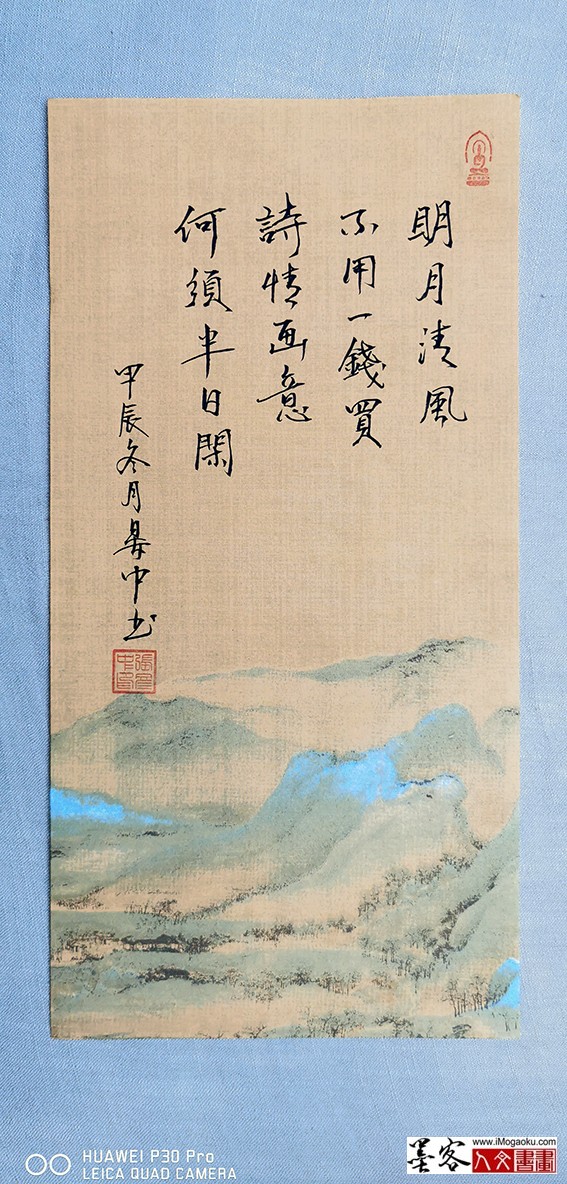 明月清風
不用一錢買
詩情画意
何須半日閑
甲辰冬月
中书
HUAWEI P30 Pro
LEICA QUAD CAMERA
墨客
www.iMogaoku.com
人文書畫